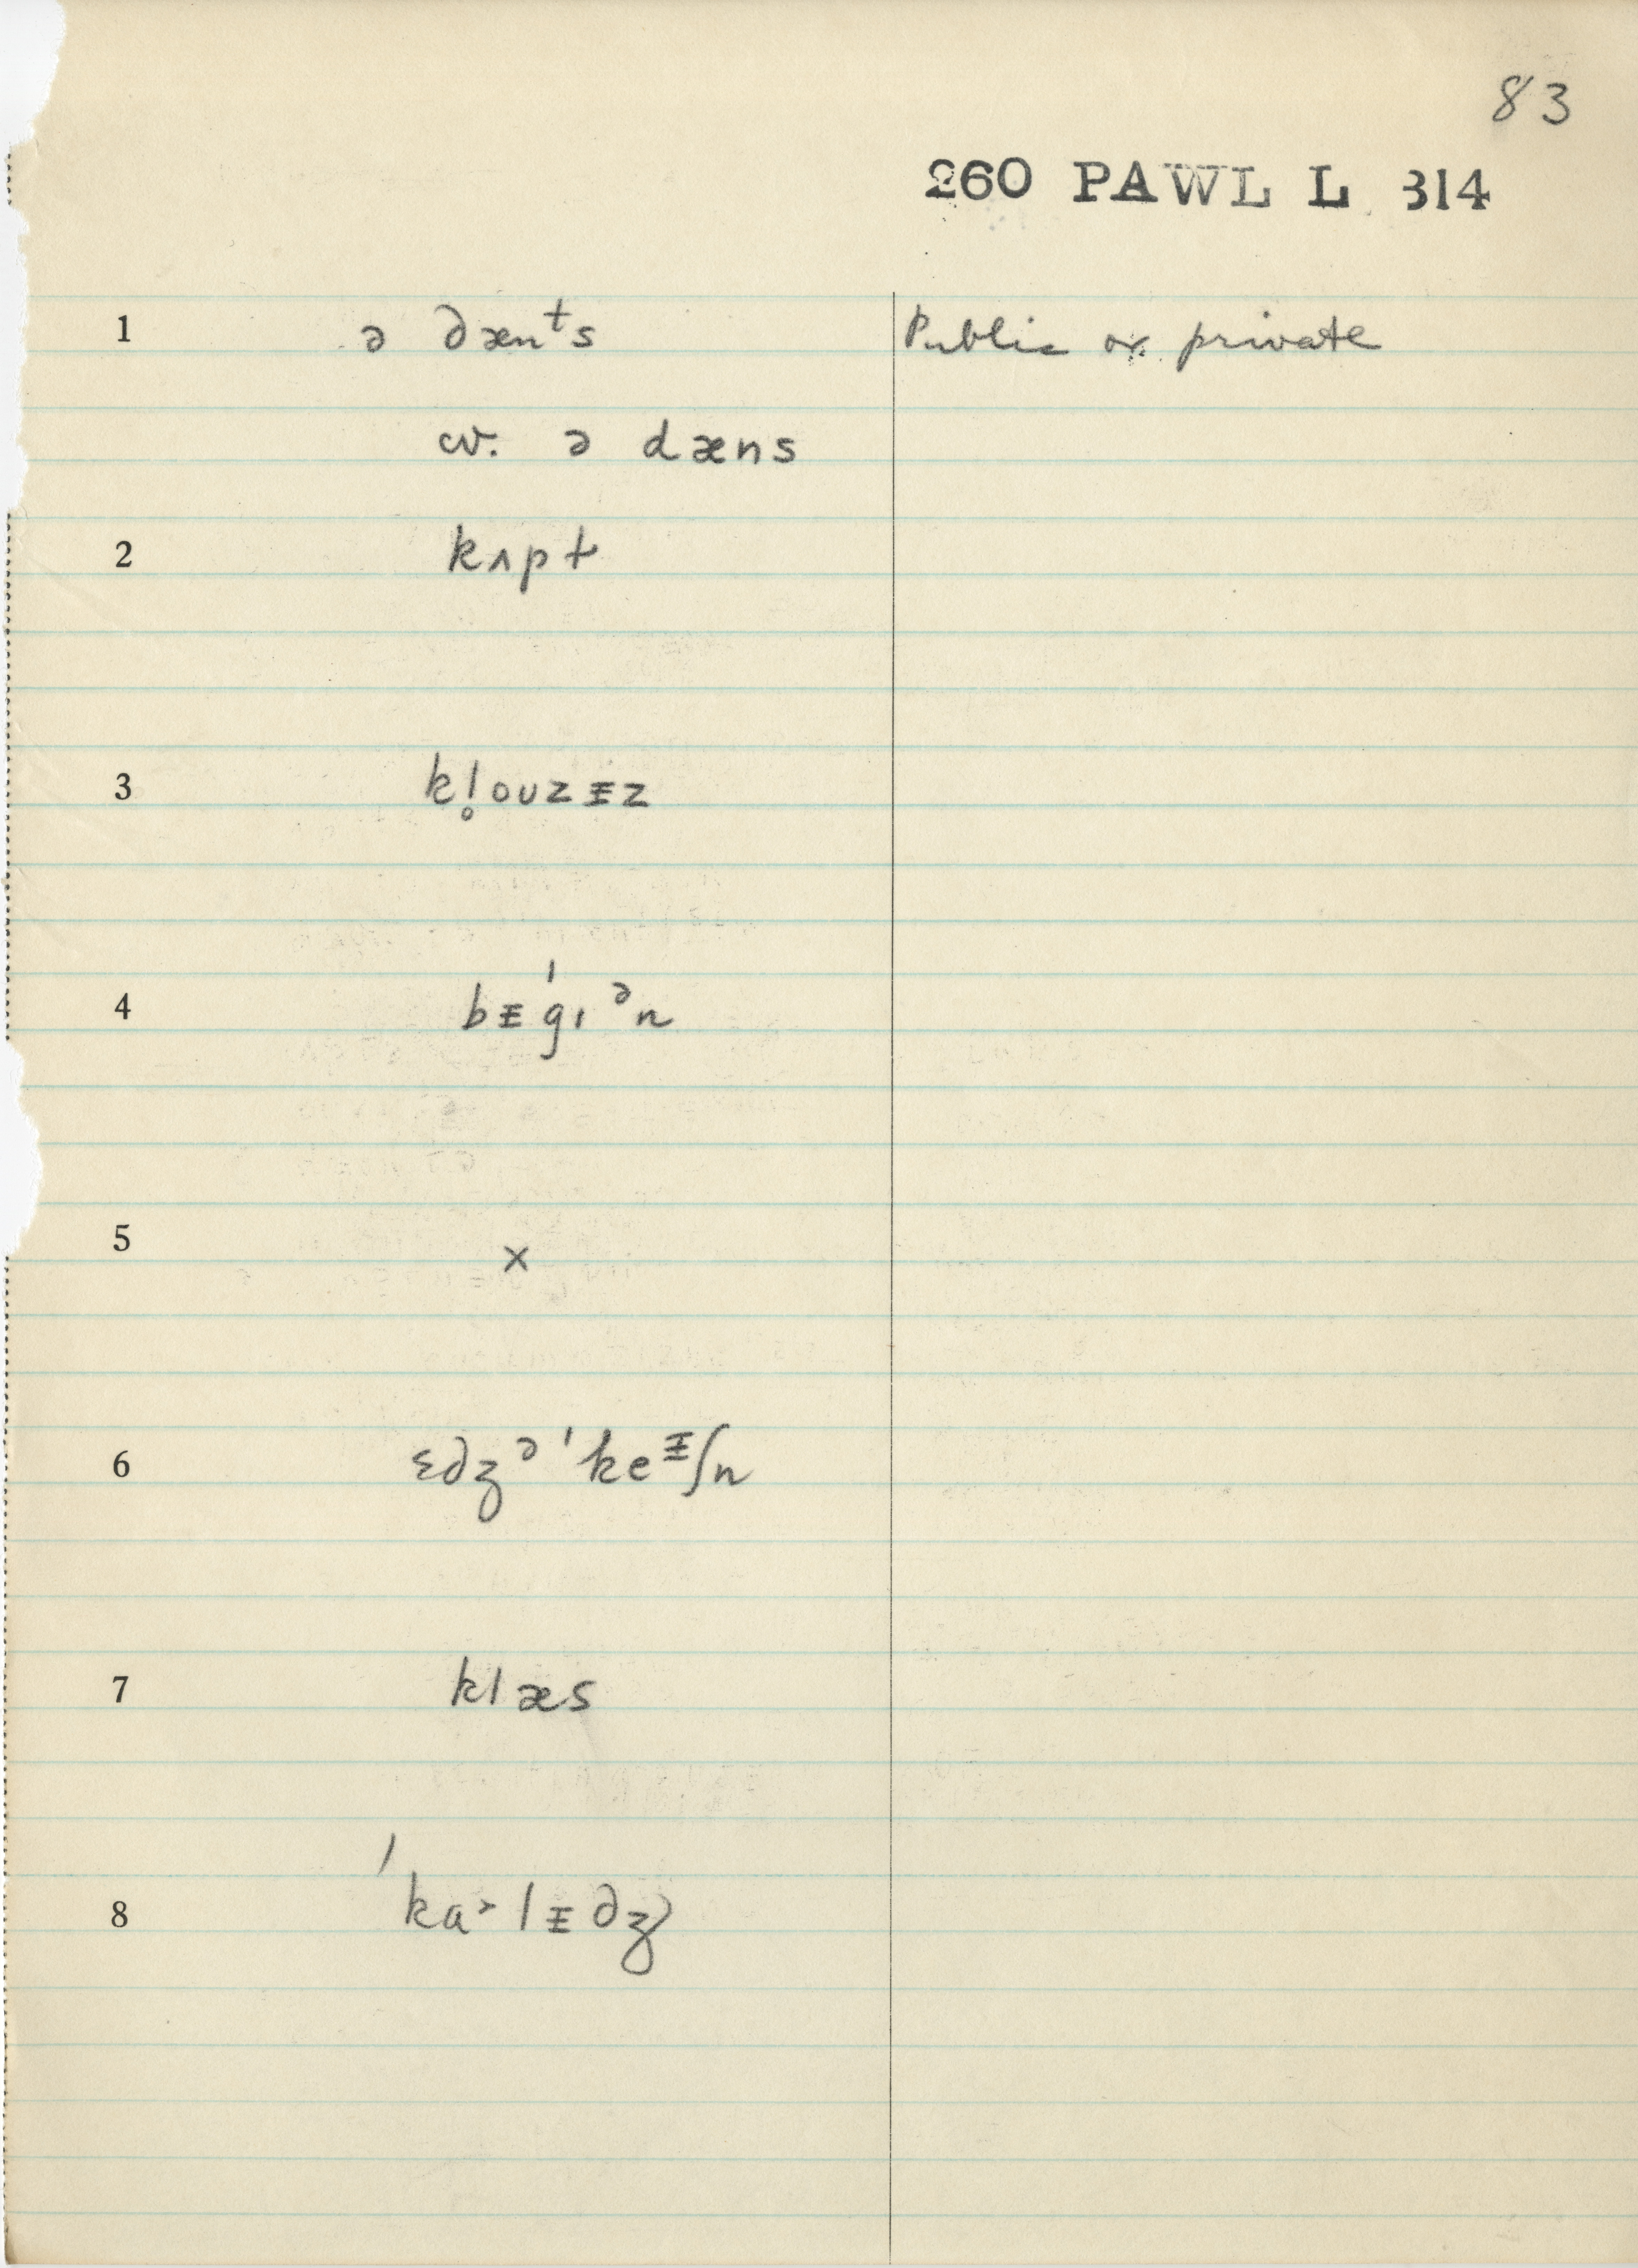 83
260 PAWL L 314
1 ə dænᵗs Public or private
cv. ə dæns
2 kʌpt
3 kl̥ouzɪ̵z
4 bɪ̵ˈgɪᵊn
5 ×
6 ɛdʒᵊˈkeᶦ̵ʃn
7 klæs
8 ˈkɑɚlɪ̵dʒ